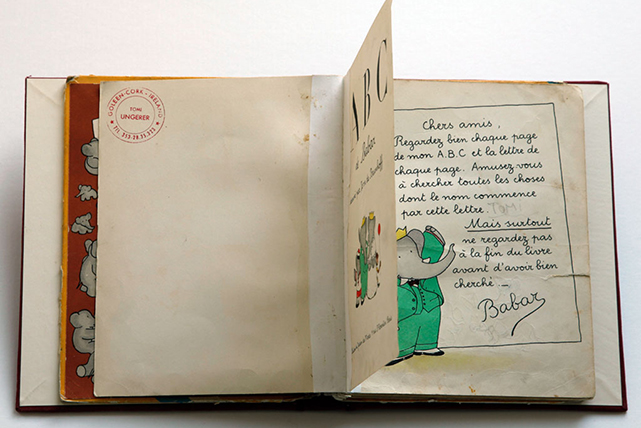 GOLEEN-CORK-IRELAND
TOMI
UNGERER
ABC
de Babar
Chers amis,
Regardez bien chaque page
de mon A.B.C et la lettre de
chaque page. Amusez-vous
à chercher toutes les choses
dont le nom commence
par cette lettre.
Mais surtout
ne regardez pas
à la fin du livre
avant d'avoir bien
cherché._
Babar